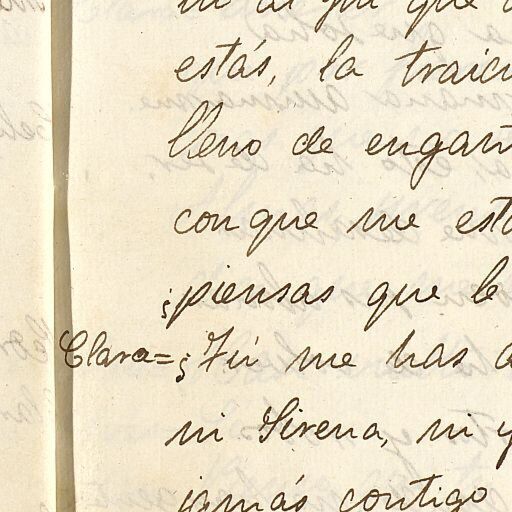 estás, la traici
lleno de engañ
conque me est
¡piensas que le
Clara=¿Tú me has a
ni Sirena, ni y
jamás contigo